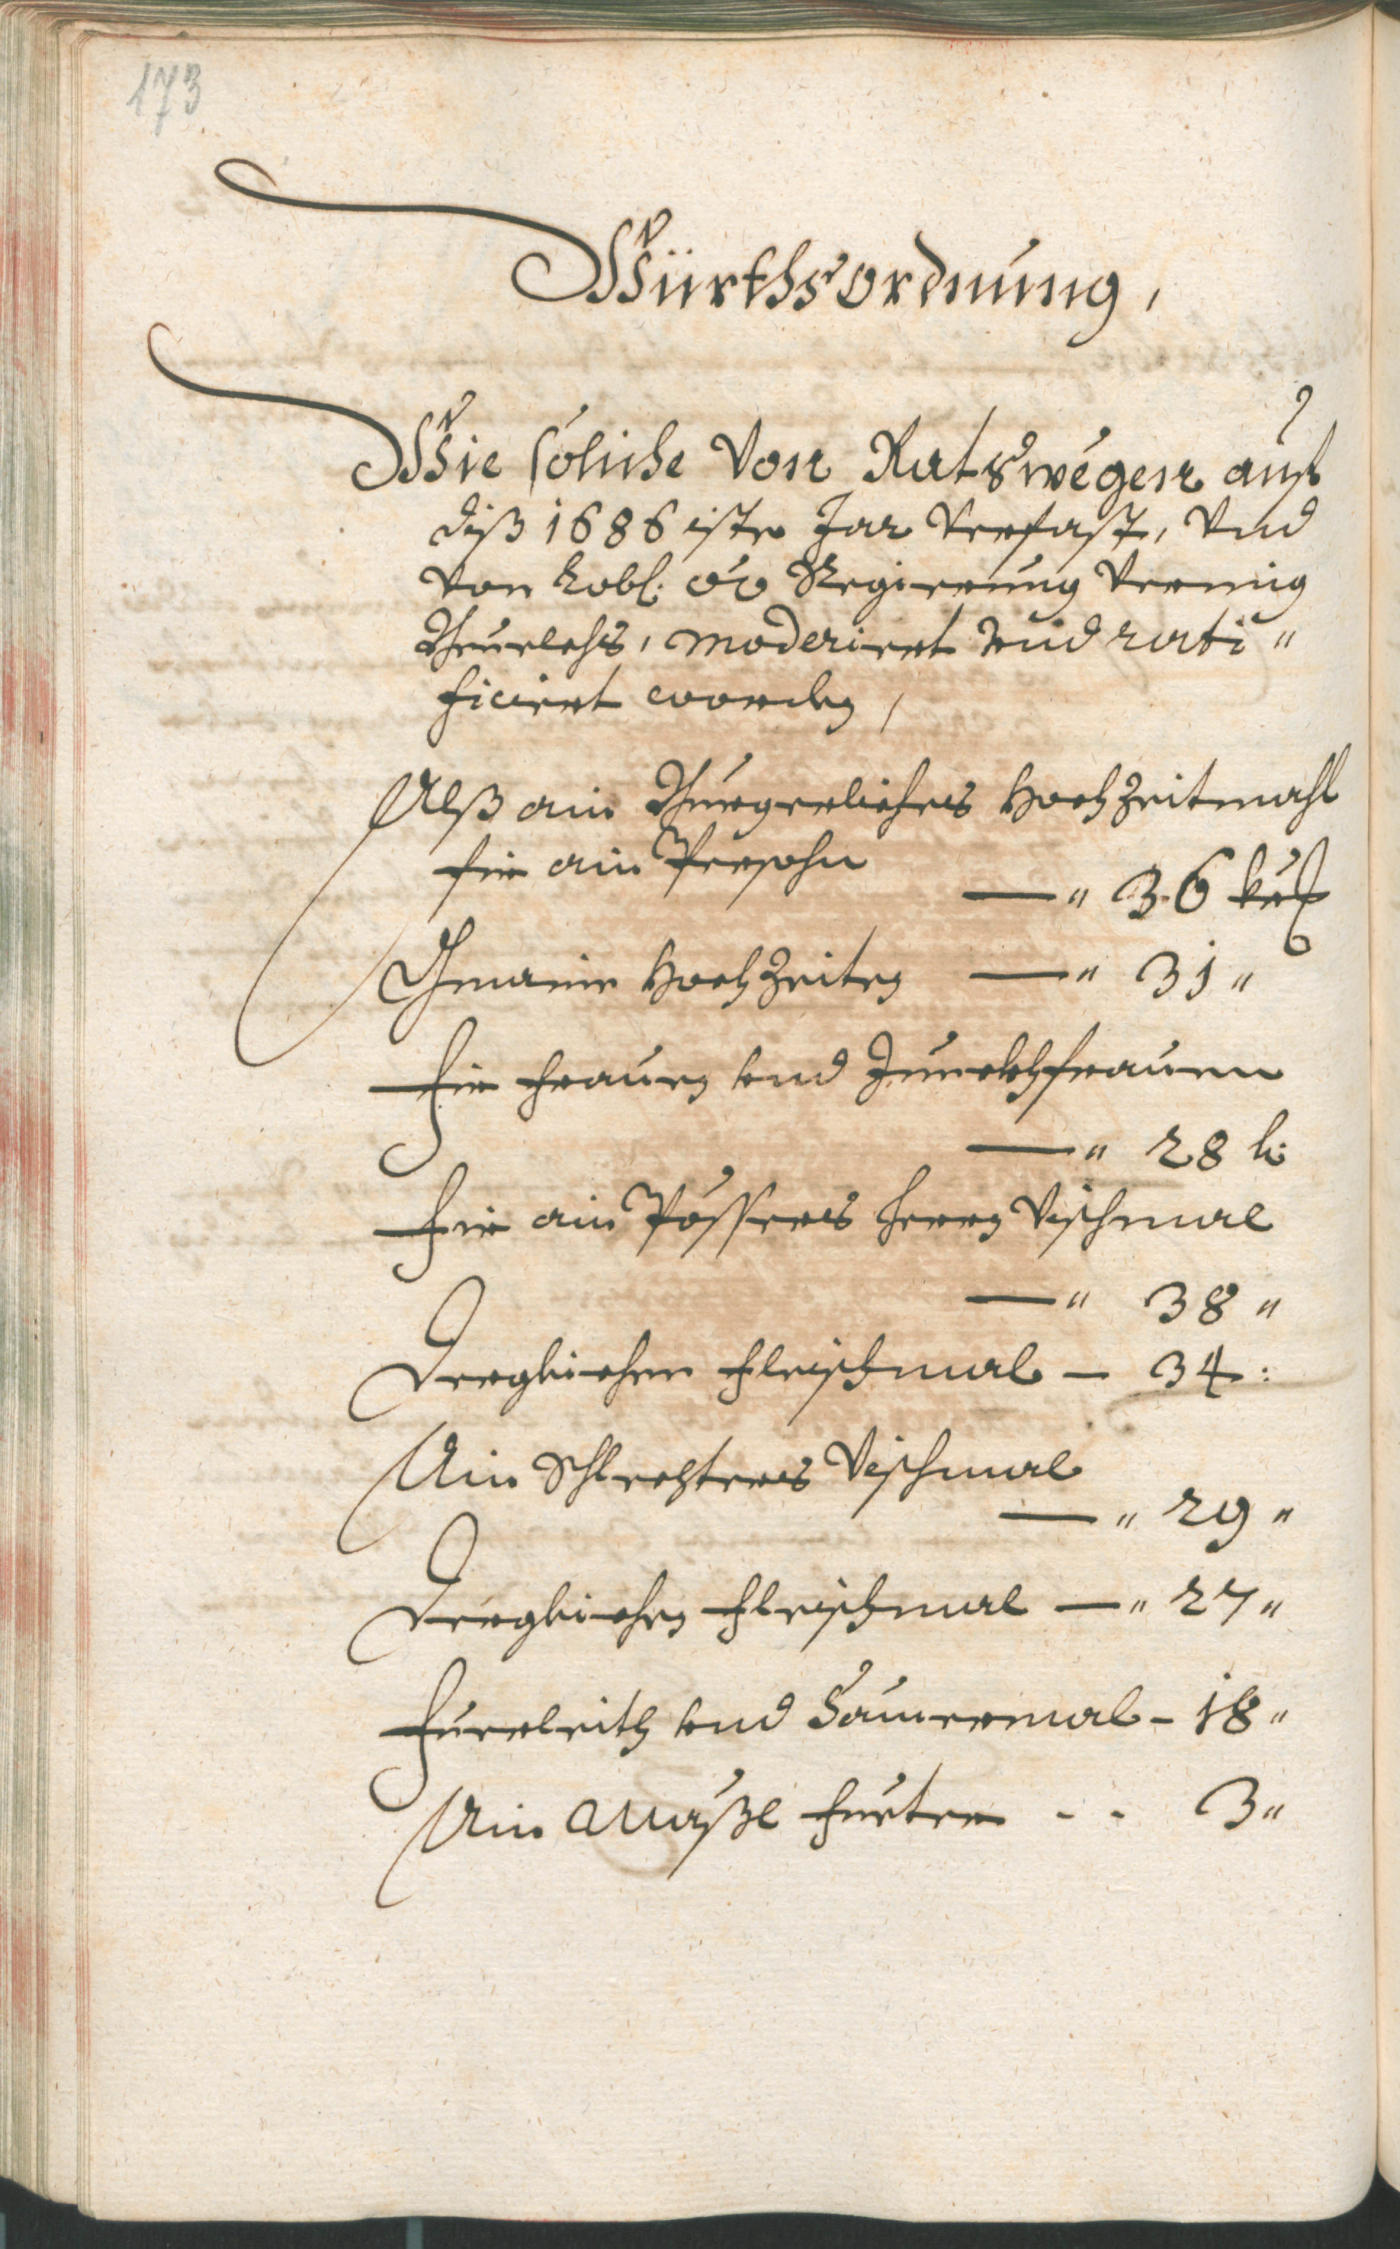 173
Würthsordnung,
Wie sóliche Von Ratswégen auf
diß 1686iste Jar verfast, vnd
von Lobl: oö Regierung vermig
Bevelchs, moderiert und rati"
ficiert worden,
Alß ain Burgerliches Hochzeitmahl
fir ain Persohn
—" 36 kr
Gmaine Hochzeiten —" 31"
Fir Frauen vnd Junckhfrauen
—" 28 k:
Fir ain Pössers Herrn Vischmal
—" 38"
Dergleichen Fleischmal — 34:
Ain Schlechteres Vischmal
—" 29"
Dergleichen Fleischmal —" 27"
Fuerleith vnd Sämermal - 18"
Ain Mäßl Fueter - - 3"